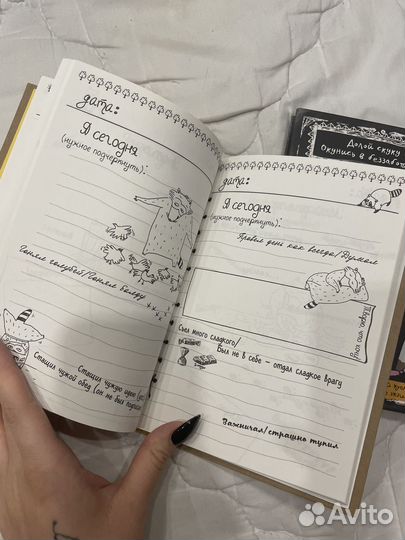 дата:
Я сегодня
(нужное подчеркнуть):
Гонял голубей/Гонял балду
Стащил чужую идею
Стащил чужой обед (он не был
дата:
Я сегодня
(нужное подчеркнуть):
Провёл день как всегда/Думал
Съел много сладкого/
Был не в себе – отдал сладкое врагу
Важничал/страшно тупил
Долой скуку
Окунись в
Avito